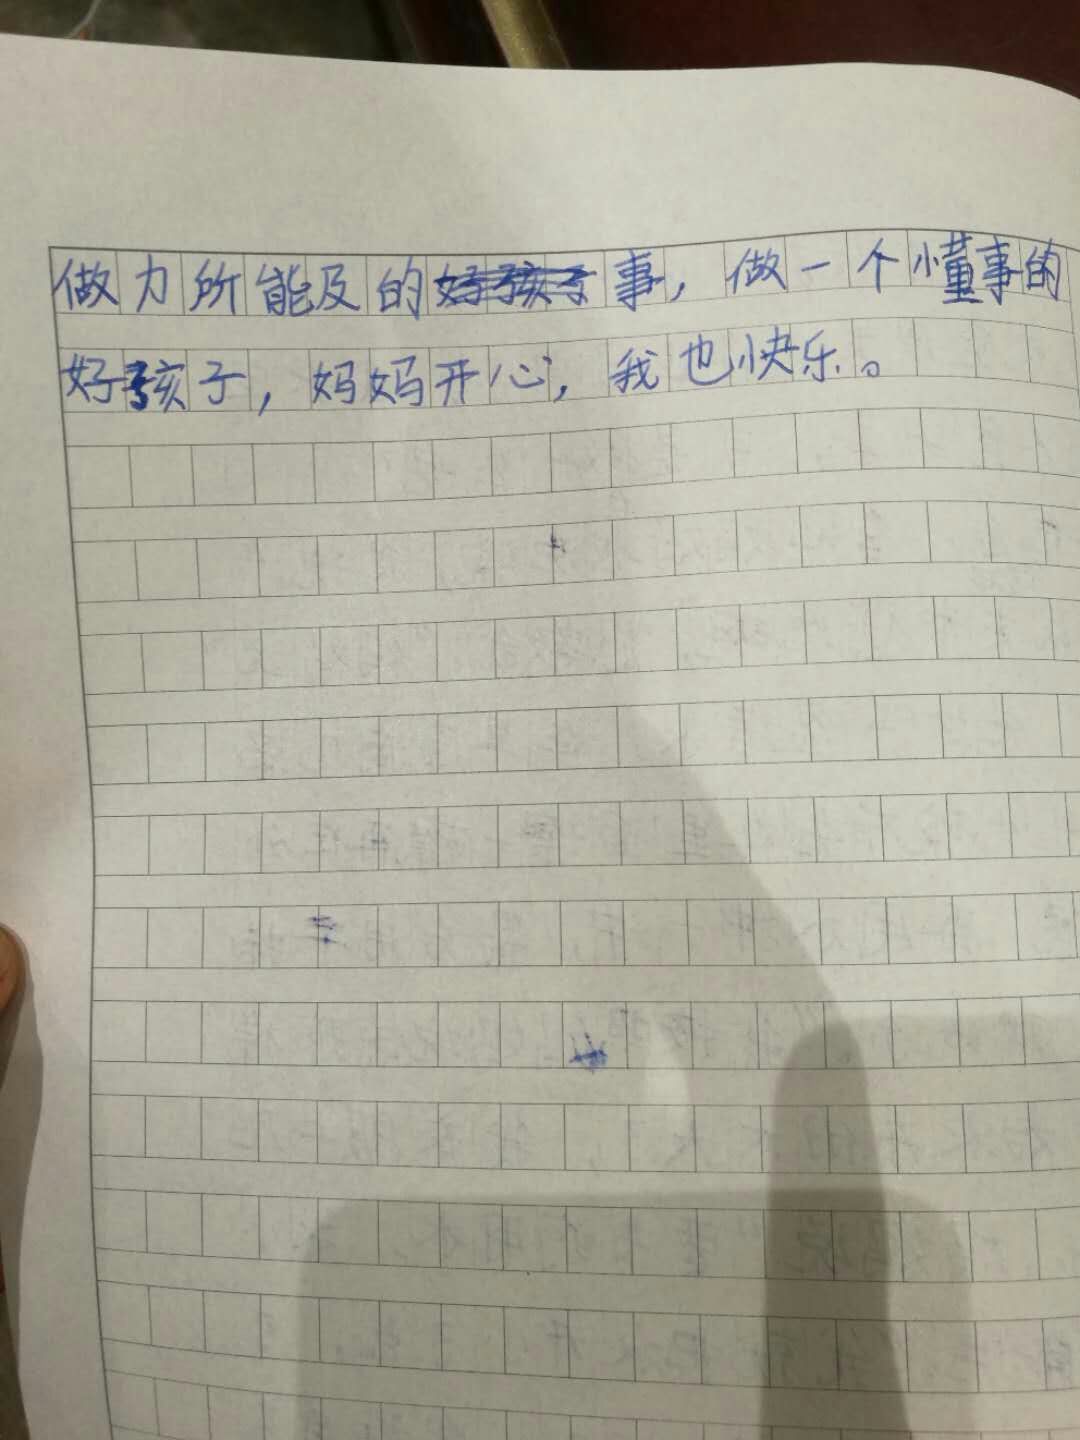 做力所能及的事，做一个懂事的
好孩子，妈妈开心，我也快乐。